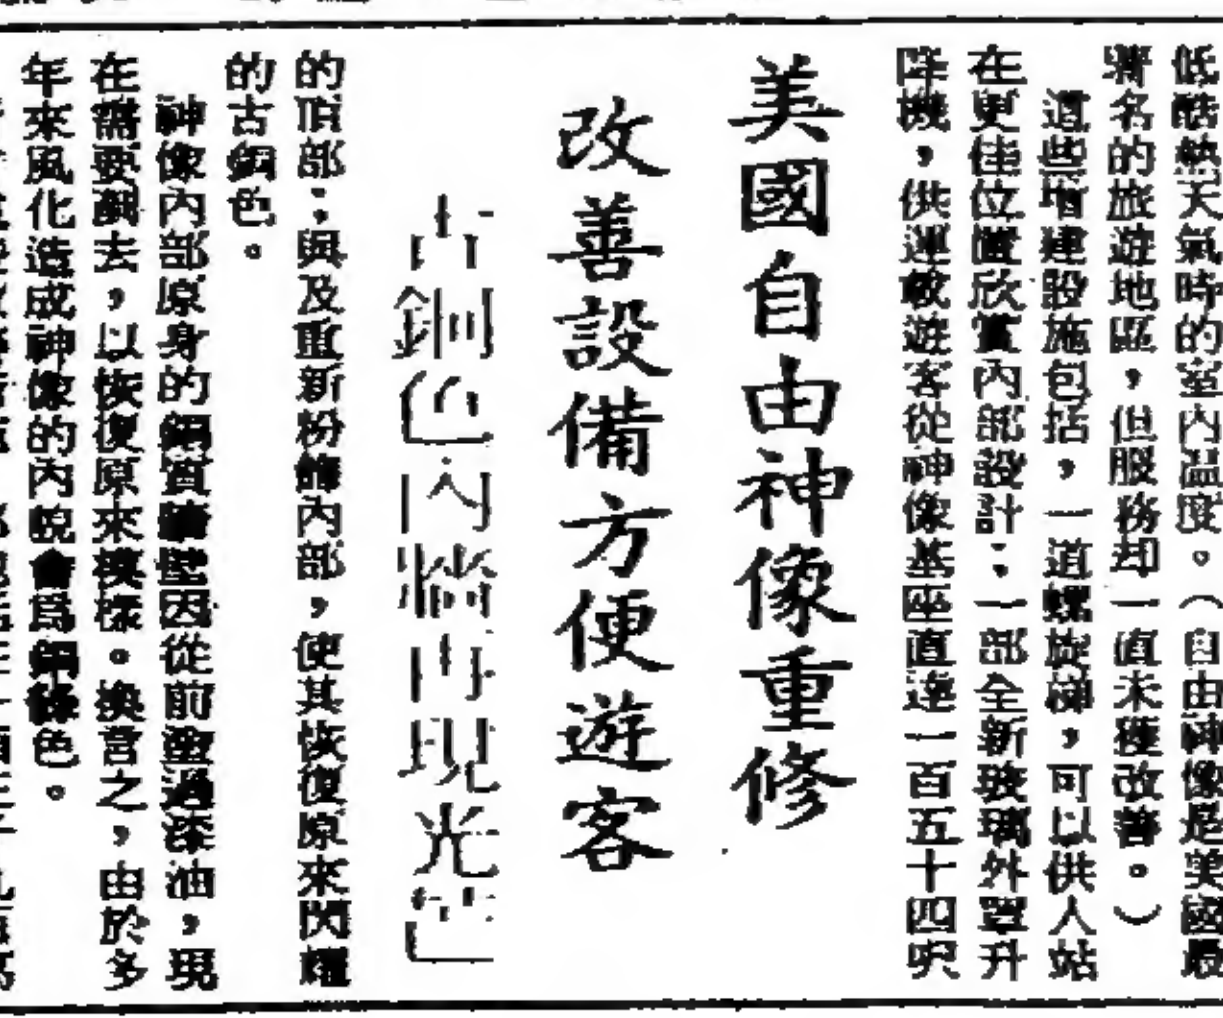 低酷熱天氣時的室內溫度。（自由神像是美國最
著名的旅遊地區，但服務却一直未獲改善。）
這些增建設施包括，一道螺旋梯，可以供人站
在更佳位置欣賞內部設計；一部全新玻璃外罩升
降機，供運載遊客從神像基座直達一百五十四呎
美國自由神像重修
改善設備方便遊客
古銅色內牆再現光芒
的頂部；與及重新粉飾內部，使其恢復原來閃耀
的古銅色。
神像內部原身的銅質牆壁因從前塗過漆油，現
在需要剷去，以恢復原來模樣。換言之，由於多
年來風化造成神像的內貌會爲銅綠色。